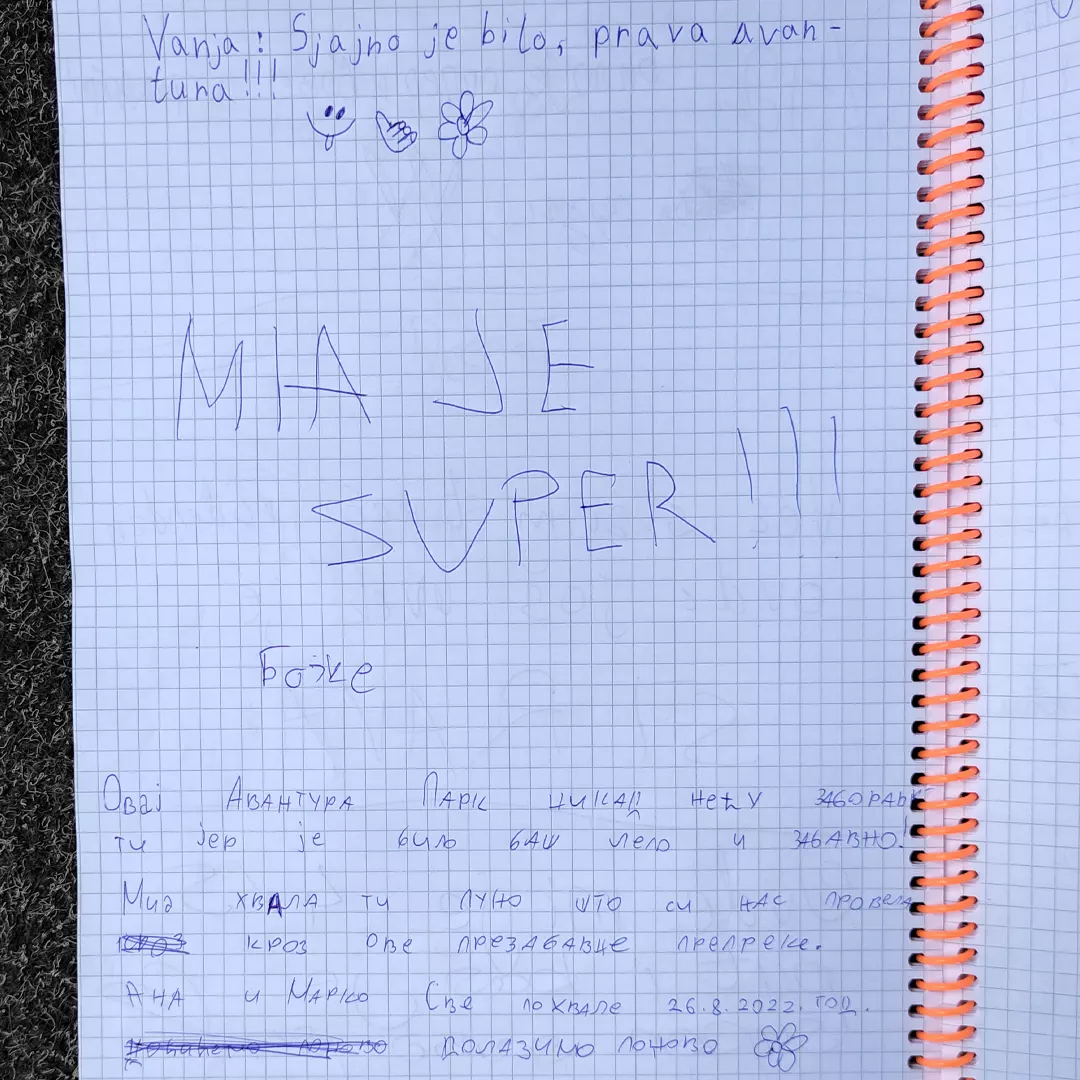 Vanja: Sjajno je bilo, prava avan-
tura!!!
MIA JE
SUPER!!!
Боже
Овај Авантура Парк никад нећу заборави
ти јер је било баш лепо и забавно!
Миа хвала ти пуно што си нас провела
кроз ове презабавне препреке.
Ана и Марко Све похвале 26.8.2022. год.
долазимо поново